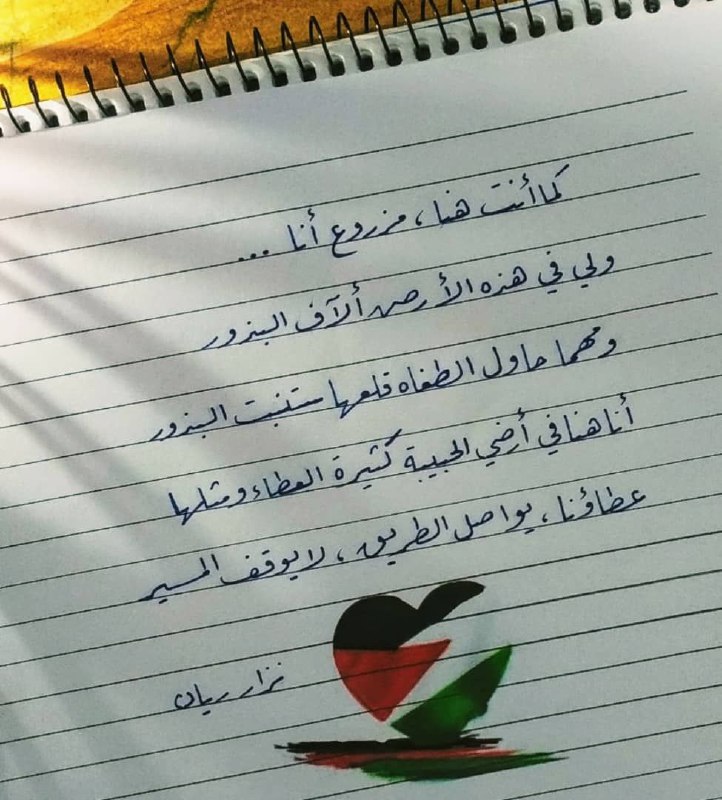 كما أنت هنا، مزروع أنا ...
ولي في هذه الأرض ألآف البذور
ومهما حاول الطغاه قلعها ستنبت البذور
أنا هنا في أرضي الحبيبة كثيرة العطاء ومثلها
عطاؤنا، يواصل الطريق، لا يوقف المسير
نزار ريان